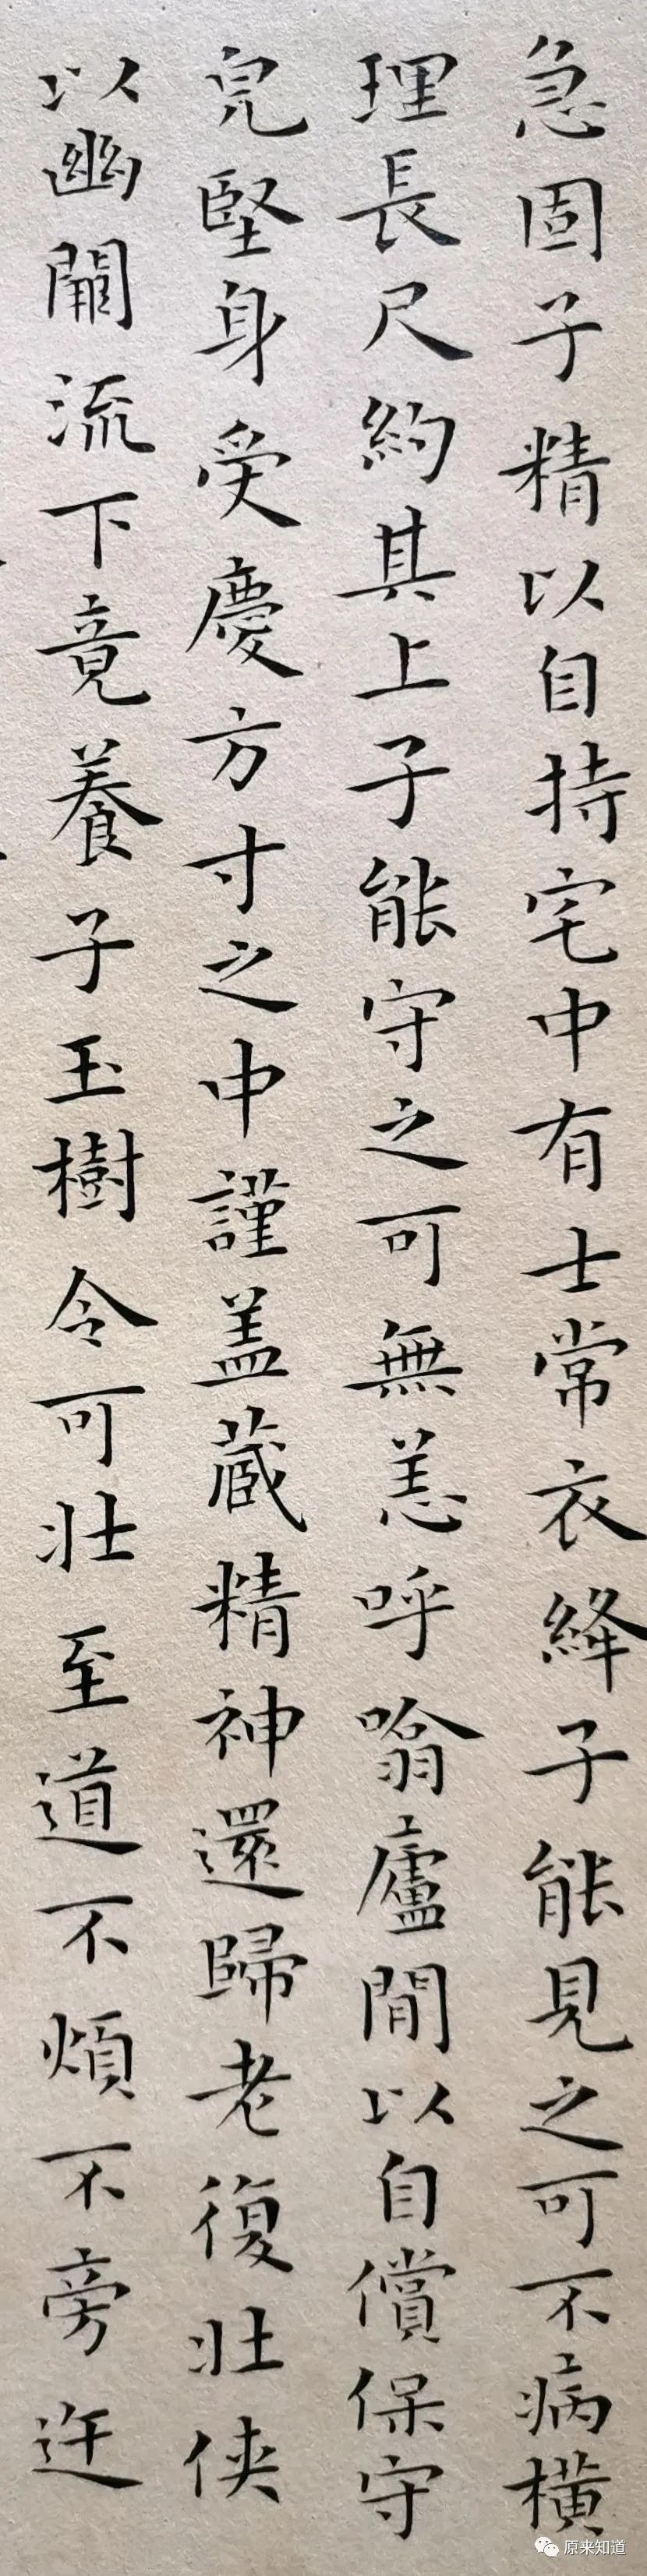 急固子精以自持宅中有士常衣絳子能見之可不病橫
理長尺約其上子能守之可無恙呼噏廬間以自償保守
皃堅身受慶方寸之中謹盖藏精神還歸老復壯俠
以幽闕流下竟養子玉樹令可壯至道不煩不旁迕
原来知道